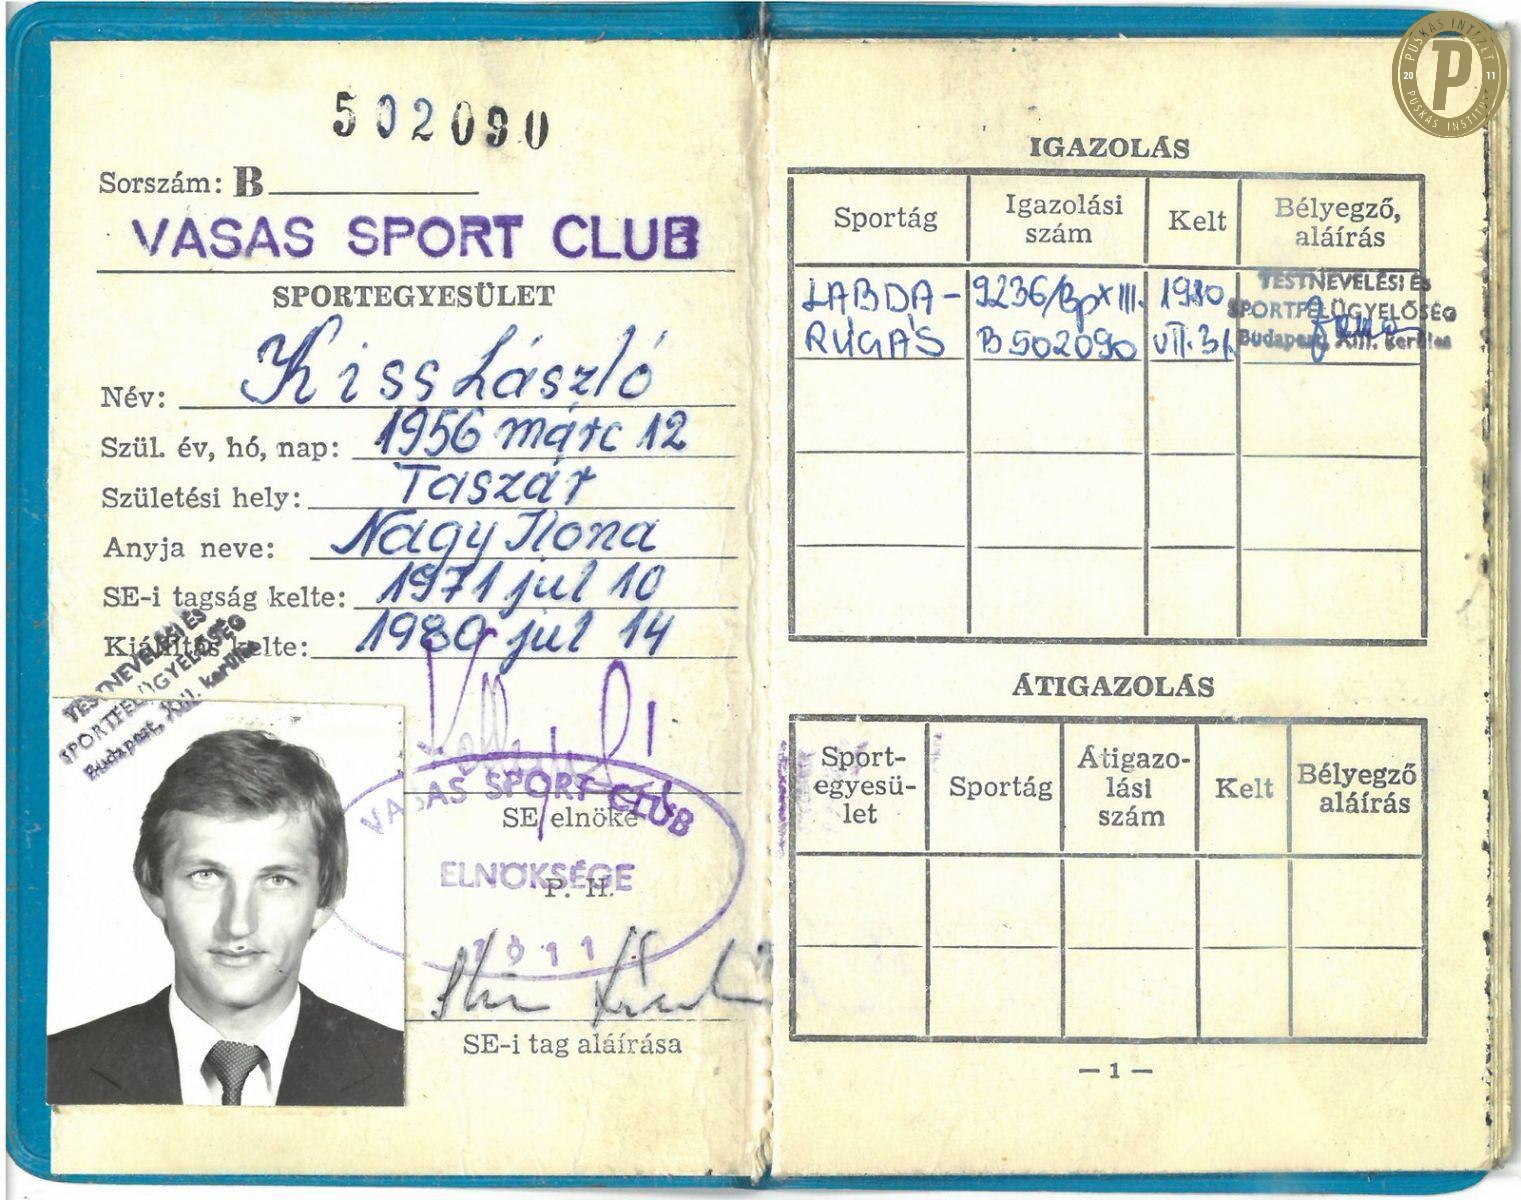 502090
Sorszám: B
VASAS SPORT CLUB
SPORTEGYESÜLET
Név: Kiss László
Szül. év, hó, nap: 1956 márc 12
Születési hely: Taszár
Anyja neve: Nagy Ilona
SE-i tagság kelte: 1971 jul 10
Kiállítás kelte: 1980 jul 14
TESTNEVELÉSI ÉS
SPORTFELÜGYELŐSÉG
Budapest, XIII. kerület
VASAS SPORT CLUB
SE elnöke
ELNÖKSÉGE
P. H.
1911
SE-i tag aláírása
PUSKÁS INTÉZET
20 P 11
PUSKÁS INSTITUTE
IGAZOLÁS
Sportág
Igazolási szám
Kelt
Bélyegző, aláírás
LABDA-
RÚGÁS
9236/Bp XIII.
B502090
1980
VII. 31.
TESTNEVELÉSI ÉS
SPORTFELÜGYELŐSÉG
Budapest, XIII. kerület
ÁTIGAZOLÁS
Sport-
egyesü-
let
Sportág
Átigazo-
lási
szám
Kelt
Bélyegző
aláírás
— 1 —